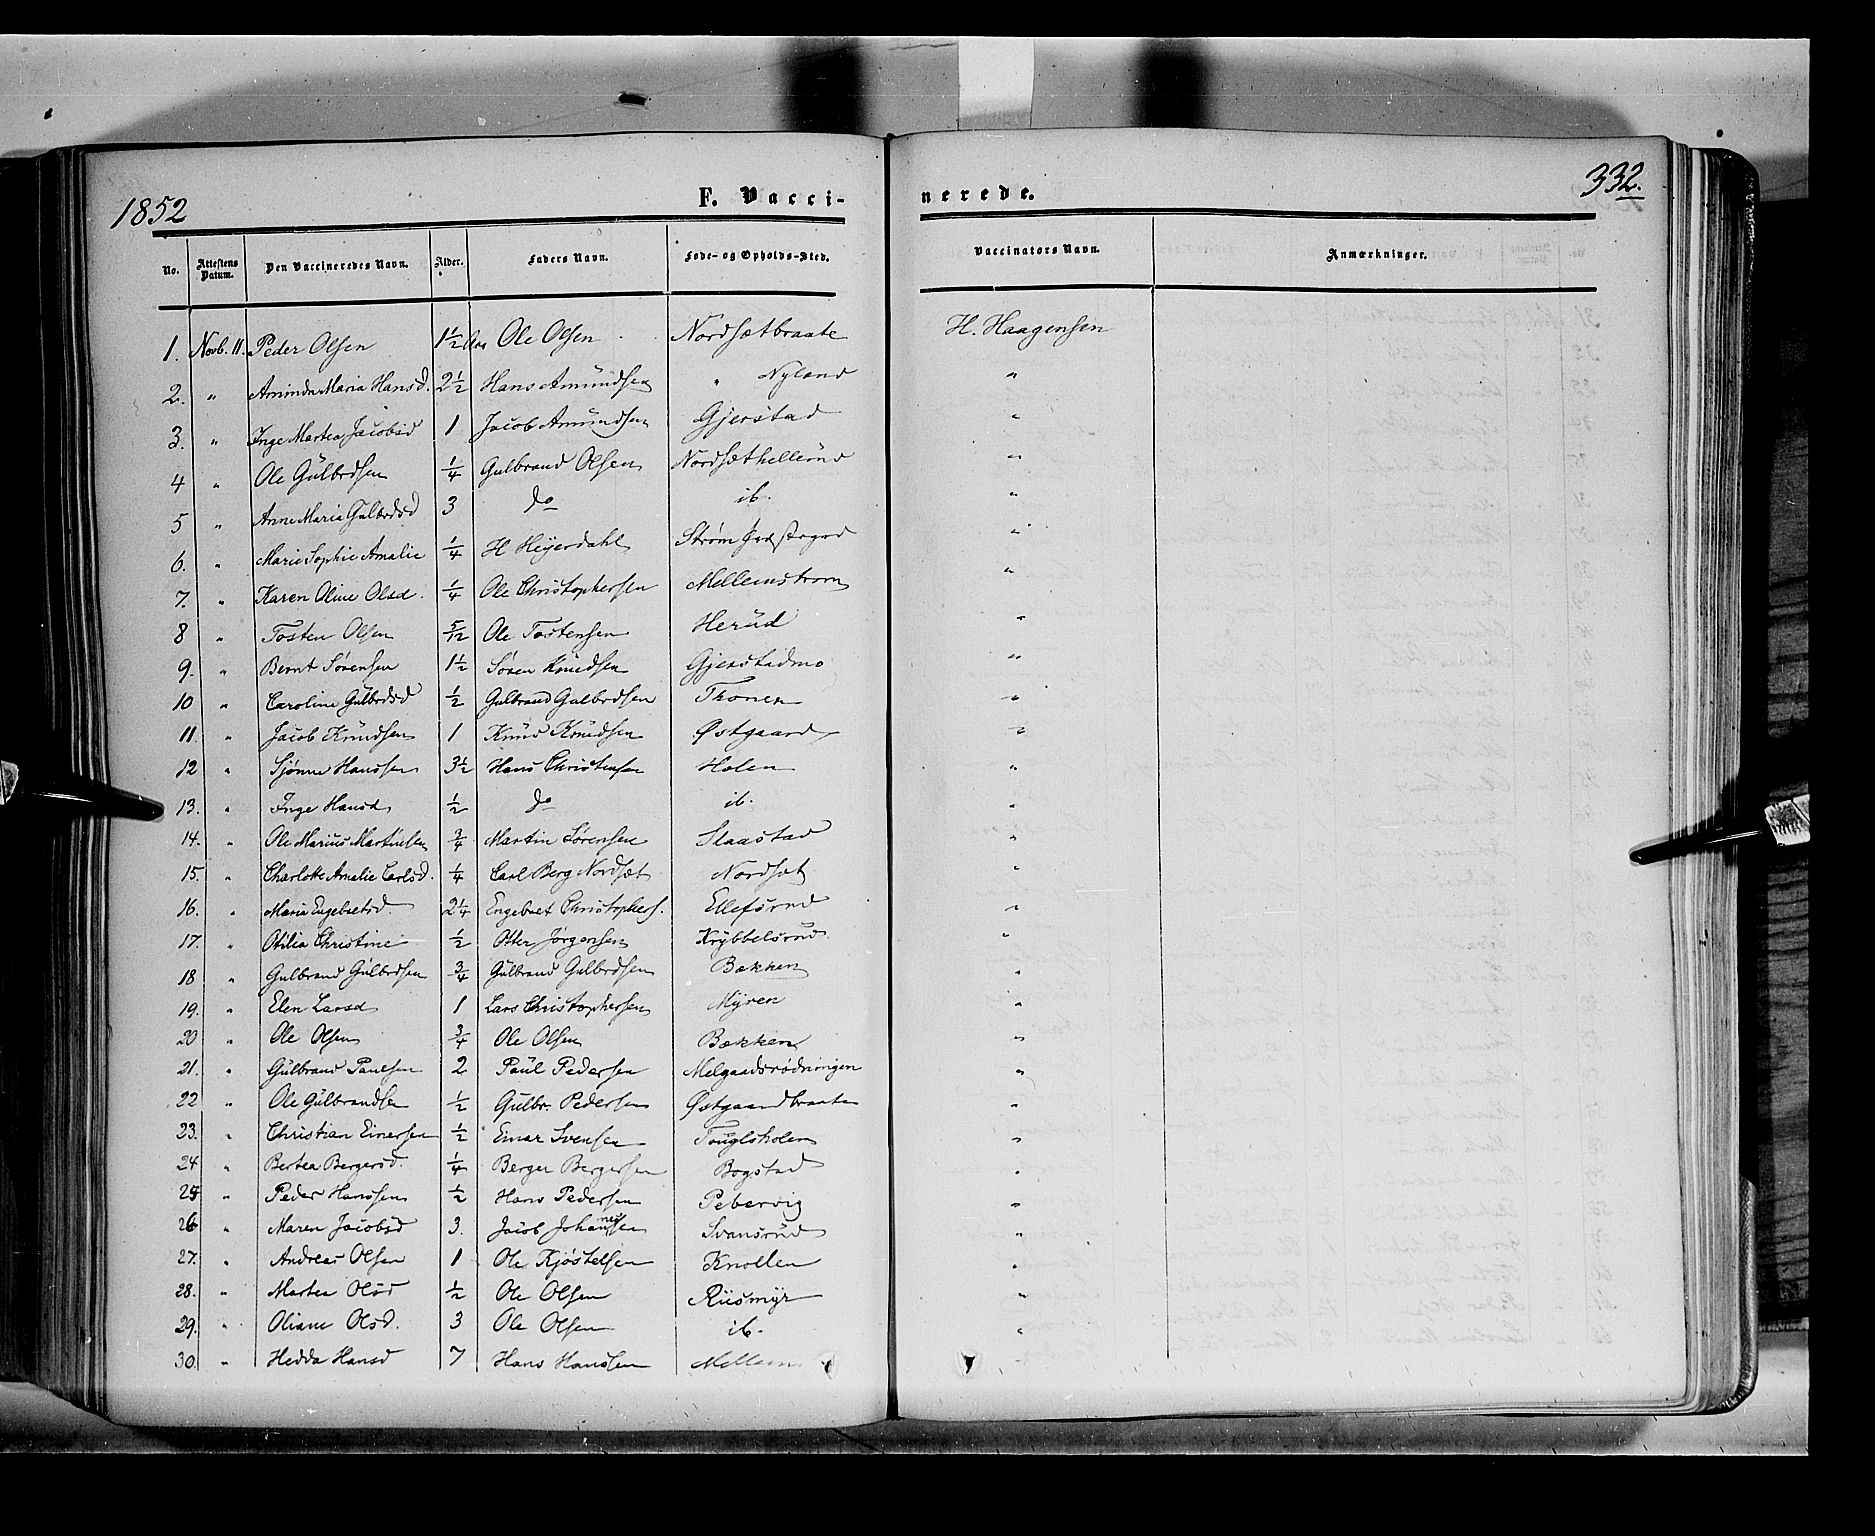 1852 F. Vacci-nerede. 332.
No. Attestens Datum. Den Vaccineredes Navn. Alder. Faders Navn. Føde- og Opholds-Sted. Vaccinators Navn. Anmærkninger.
1. Novb. 11. Peder Olsen 1½ Aar Ole Olsen Nordsætbraate H. Haagensen
2. " Aminda Maria Hansd. 2½ Hans Amundsen " Nyland "
3. " Inge Martea Jacobsd 1 Jacob Amundsen Gjerstad "
4 " Ole Gulbrdsen ¼ Gulbrand Olsen Nordsæthellerud "
5 " Anne Maria Gulbrdsd 3 do ib. "
6. " Marie Sophie Amalie ¼ H Heyerdahl Strøm Præstegrd "
7. " Karen Oline Olsd. ¼ Ole Christophersen Mellemstrøm "
8 " Tosten Olsen 5/12 Ole Tostensen Herud "
9. " Bernt Sørensen 1½ Søren Knudsen Gjerstadmo "
10 " Caroline Gulbrdsd ½ Gulbrand Gulbrdsen Thonen "
11. " Jacob Knudsen 1 Knud Knudsen Østgaard "
12 " Sjønne Hanssen 3½ Hans Christensen Holen "
13. " Inge Hansd ½ do ib. "
14. " Ole Marius Martinsen ¾ Martin Sørensen Slaastad "
15. " Charlotte Amalie Carlsd. ¼ Carl Berg Nordsæt Nordsæt "
16. " Maria Engebretsd. 2¼ Engebret Christophers. Ellefsrud "
17. " Otilia Christine ½ Otter Jørgensen Krybbelsrud "
18 " Gulbrand Gulbrdsen ¾ Gulbrand Gulbrdsen Bækken "
19. " Elen Larsd 1 Lars Christophersen Myren "
20 " Ole Olsen ¾ Ole Olsen Bækken "
21. " Gulbrand Paulsen 2 Paul Pedersen Melgaardsrødningen "
22 " Ole Gulbrandsen ½ Gulbr. Pedersen Østgaardbraate "
23. " Christian Einersen ½ Einar Svensen Fouglsholen "
24 " Bertea Bergersd. ¼ Berger Bergersen Bogstad "
25 " Peder Hanssen ½ Hans Pedersen Pebervig "
26 " Maren Jacobsd 3. Jacob Johannessen Svansrud "
27. " Andreas Olsen 1 Ole Kjøstelsen Knollen "
28. " Martea Olsd ½ Ole Olsen Riismyr "
29. " Oliane Olsd. 3 Ole Olsen ib. "
30. " Hedda Hansd 7 Hans Hanssen Mellem